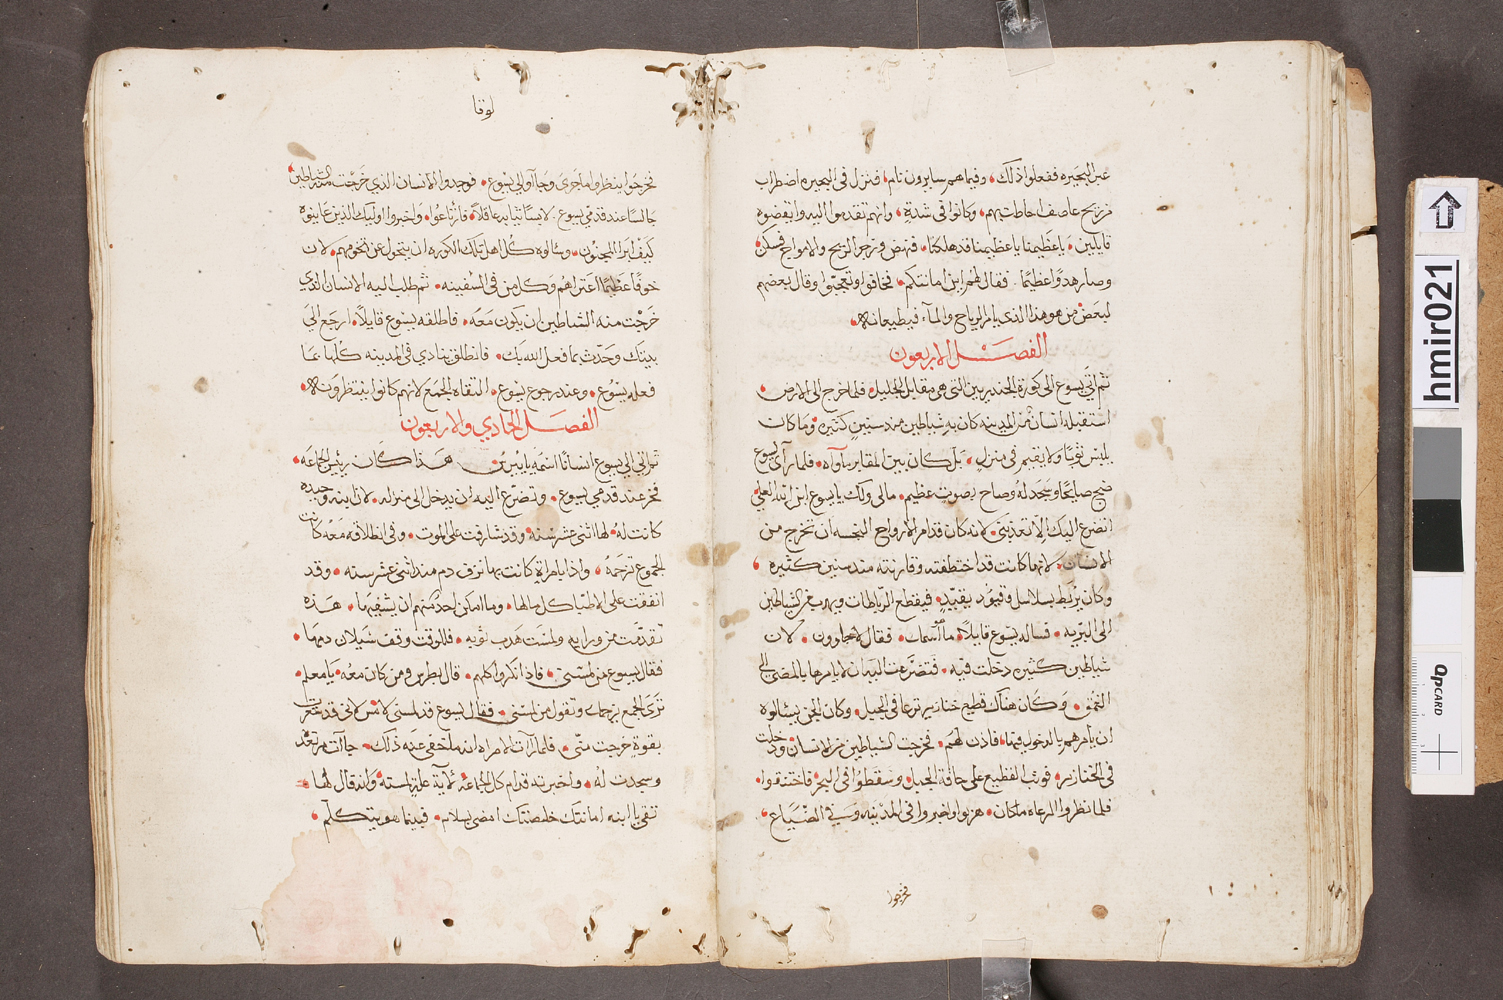 عبر البحيره ففعلوا ذلك، وفيما هم سايرون نام، فنزل في البحيره اضطراب
من ريح عاصف احاطت بهم، وكانوا في شدةٍ، وانهم تقدموا اليه وانهضوه
قايلين، يا عظيمنا يا عظيمنا قد هلكنا، فنهض وزجر الريح والامواج فسكن،
وصار هدوًا عظيمًا. فقال لهم اين امانتكم، فخافوا وتعجبوا وقال بعضهم
لبعضٍ من هو هذا الذي يامر الرياح والمآء فيطيعانه،
الفصل الاربعون
ثم اتي يسوع الى كورة الجدريين التى هى مقابل الجليل، فلما خرج الى الارض،
استقبله انسان من المدينه كان به شياطين مند سنين كثيره، وما كان
يلبس ثوبًا ولا يقيم في منزلٍ، بل كان بين المقابر ماواه، فلما راى يسوع
ضج صايحًا وسجد له وصاح بصوت عظيم، مالى ولك يا يسوع ابن الله العلي
اتضرع اليك الا تعذبني، لانه كان قد امر الارواح النجسه ان تخرج من
الانسان، لانها كانت قد اختطفته وقارنته مند سنين كثيره،
وكان يربط بسلاسل وقيود بقييدٍ، فيقطع الرباطات ويهرب من الشياطين
الى البريه، فساله يسوع قايلًا، ما اسمك، فقال لاجاوون، لان
شياطين كثيره دخلت فيه، فتضرعت اليه ان لا يامرها بالمضي الى
العمق، وكان هناك قطيع خنازير ترعا في الجبل، وكان الجن يسالوه
ان يامرهم بالدخول فيها، فاذن لهم، فخرجت الشياطين من الانسان ودخلت
في الخنازير، فوثب القطيع على حافة الجبل، وسقطوا في البحر فاختنقوا،
فلما نظروا الرعاه ما كان، هربوا واخبروا في المدينه وفي الضياع،
فخرجوا
لوقا
فخرجوا لينظروا ما جرى وجاآوا الي يسوع، فوجدوا الانسان الذي خرجت منه الشياطين،
جالسًا عند قدمي يسوع. لابسًا ثيابه عاقلًا، فارتاعوا، واخبروا اوليك الذين عاينوه
كيف ابرا المجنون، وسالوه كل اهل تلك الكوره ان يتحول عن تخومهم، لان
خوفًا عظيمًا اعتراهم وكل من في السفينه، ثم طلب اليه الانسان الذي
خرجت منه الشياطين ان يكون معه، فاطلقه يسوع قايلًا، ارجع الى
بيتك وحدث بما فعل الله بك، فانطلق ينادي في المدينه كلها بما
فعله يسوع، وعند رجوع يسوع، التقاه الجمع لانهم كانوا ينتظرونه،
الفصل الحادي والاربعون
ثم اتي الي يسوع انسانًا اسمه يايرس، هذا كان ريس الجماعه،
فخر عند قدمي يسوع، وتضرع اليه ان يدخل الى منزله، لان ابنه وحيده
كانت له، لها اثنى عشر سنه، وقد شارفت على الموت، وفي انطلاقه معه كان
الجموع تزحمه، واذا بامراةٍ كانت بها نزف دم مند اثنى عشر سنه، وقد
انفقت على الاطبا كل مالها، وما امكن احدًا منهم ان يشفيها، هذه
تقدمت من ورايه ولمست هدب ثوبه، فللوقت وقف سيلان دمها،
فقال يسوع من لمسني، فاذ انكروا كلهم، قال بطرس ومن كان معه، يا معلم،
ترى الجمع يزحمك وتقول من لمسني، فقال يسوع قد لمسني لامس لاني قد شعرت
بقوة خرجت مني، فلما رات الامراه انه ما خفي عنه ذلك، جاآت مرتعده
وسجدت له، واخبرته قدام كل الجماعه لاية علةٍ لمسته، وانه قال لها،
ثقي يا ابنه امانتك خلصتك امضى بسلام، فبينما هو يتكلم،
hmir021
QPCARD